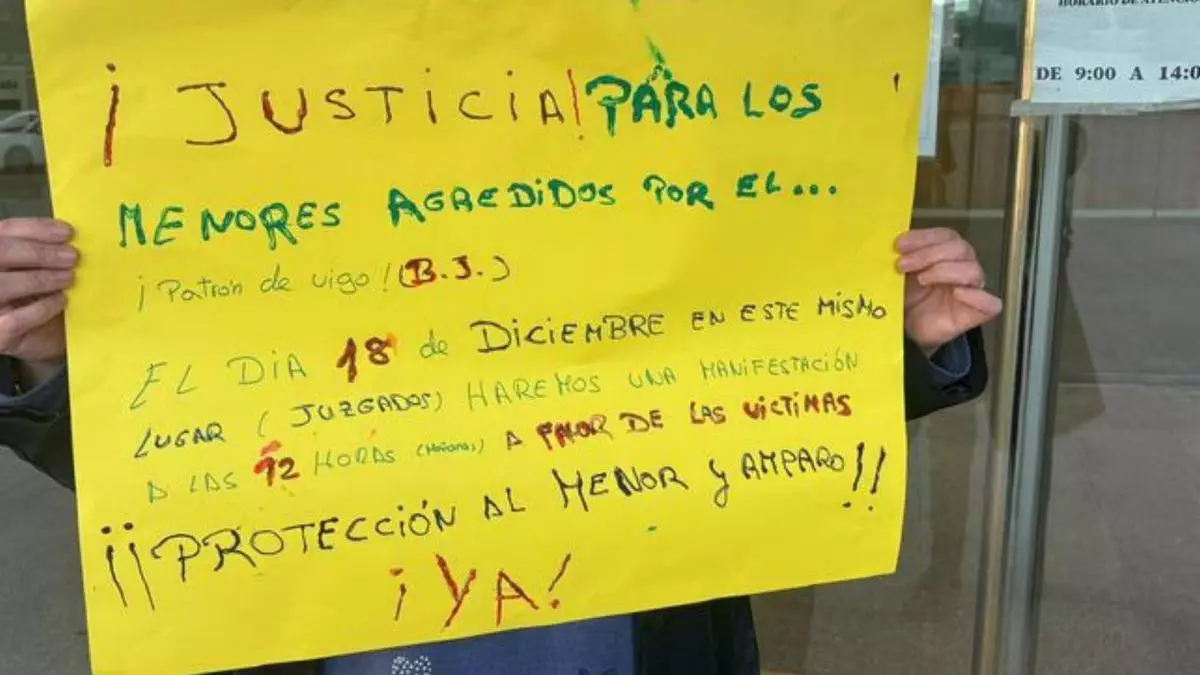 ¡JUSTICIA! PARA LOS
MENORES AGREDIDOS POR EL...
¡Patrón de vigo! (B.J.)
EL DIA 18 de DICIEMBRE EN ESTE MISMO
LUGAR (JUZGADOS) HAREMOS UNA MANIFESTACIÓN
A LAS 12 HORAS (Mañana) A FAVOR DE LAS VICTIMAS
¡¡PROTECCIÓN AL MENOR Y AMPARO!!
¡YA!
HORARIO DE ATENCIÓN
DE 9:00 A 14:0